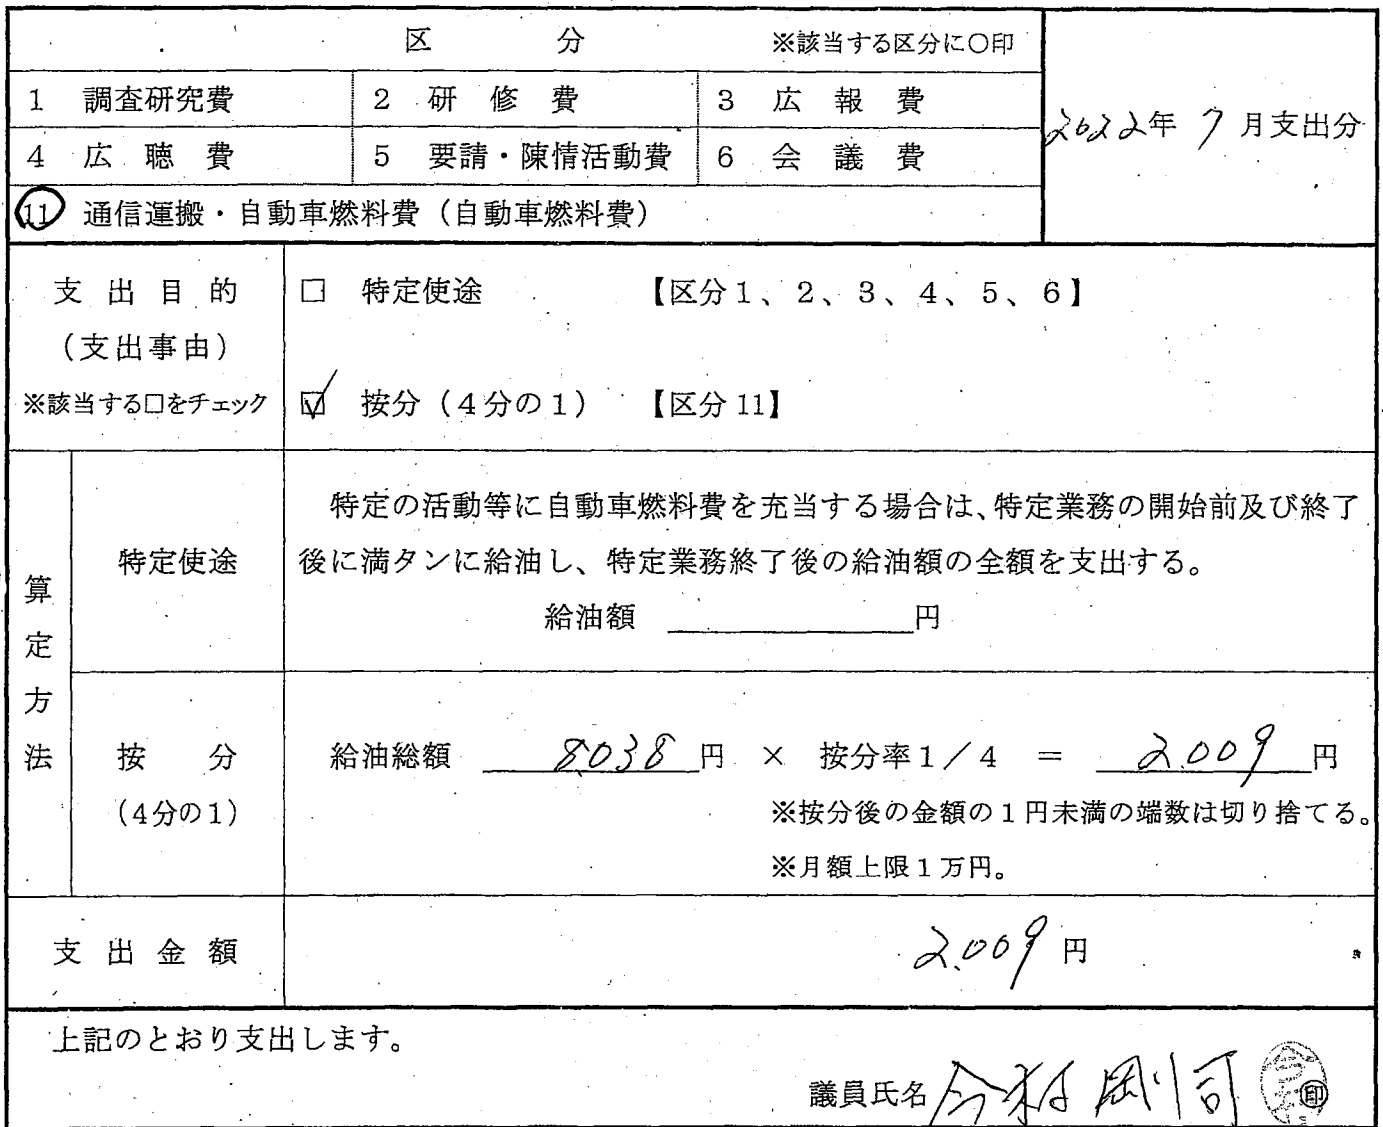 区 分 ※該当する区分に○印
1 調査研究費 2 研修費 3 広報費
2022年 7月支出分
4 広聴費 5 要請・陳情活動費 6 会議費
11 通信運搬・自動車燃料費（自動車燃料費）
支出目的
（支出事由）
※該当する□をチェック
□ 特定使途 【区分1、2、3、4、5、6】
☑ 按分（4分の1） 【区分11】
算定方法
特定使途
特定の活動等に自動車燃料費を充当する場合は、特定業務の開始前及び終了
後に満タンに給油し、特定業務終了後の給油額の全額を支出する。
給油額 円
按分
（4分の1）
給油総額 8,038 円 × 按分率1／4 ＝ 2,009 円
※按分後の金額の1円未満の端数は切り捨てる。
※月額上限1万円。
支出金額 2,009 円
上記のとおり支出します。
議員氏名 今村 剛司 印